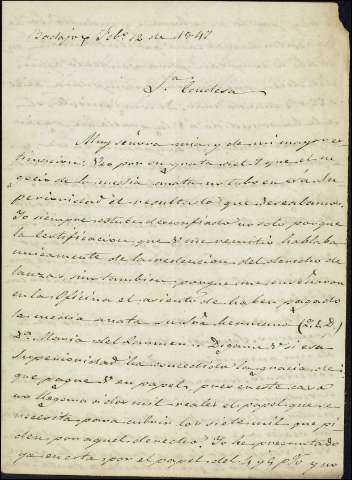 Badajoz Feb.º 12 de 1847
S.ª Condesa
Muy señora mia y de mi mayor es-
timacion: Veo por su grata del 7 que el ne-
gocio de la media anata no tubo en esa Su-
perioridad el resultado que deseabamos.
Yo siempre estube desconfiado no solo porque
la certificacion que V. me remitió hablaba
unicamente de la redencion del derecho de
lanzas, sin tambien porque me enseñaron
en la Oficina el asiento de haber pagado
la media anata su Sra hermana (Q.E.D.)
D.ª Maria del Carmen. Digame V. si esa
Superioridad ha concedido la gracia de
que pague V. en papel, pues en este caso
no llegaria a dos mil reales el papel que se
necesita para cubrir los siete mil que pi-
den por aquel derecho? Yo he preguntado
ya en esta por el papel del 4 y 5 p% y no